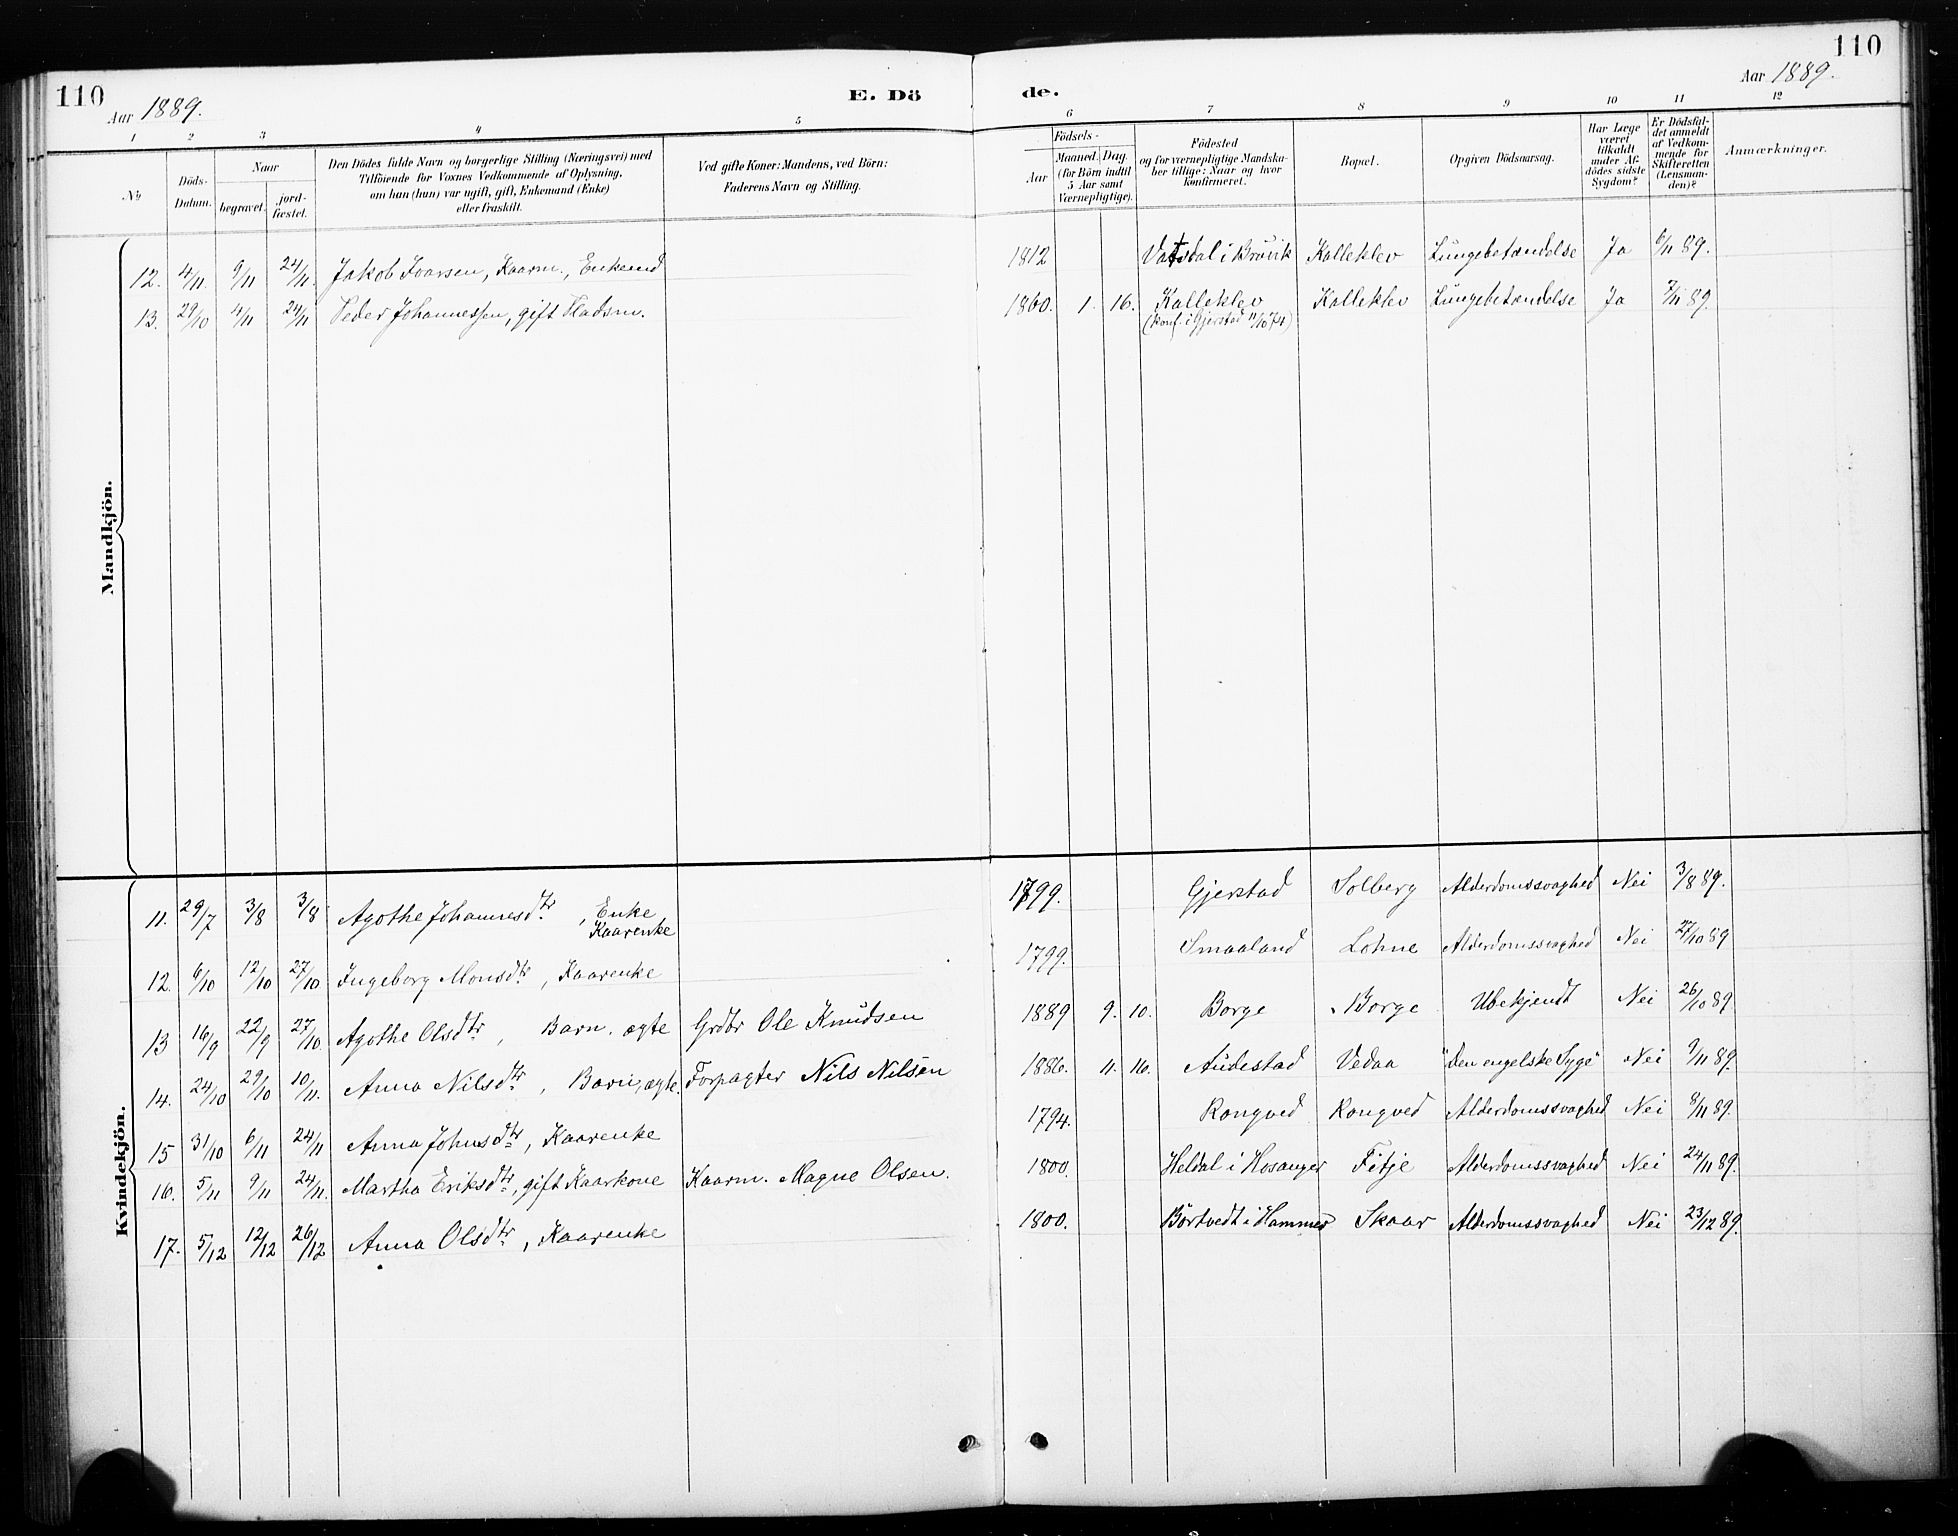 110
Aar 1889.
E. Dö
de.
Aar 1889.
110
1 2 3 4 5 6 7 8 9 10 11 12
No
Döds-Datum.
Naar
begravet.
jord-fæstet.
Den Dödes fulde Navn og borgerlige Stilling (Næringsvei) med
Tilföiende for Voxnes Vedkommende af Oplysning,
om han (hun) var ugift, gift, Enkemand (Enke)
eller fraskilt.
Ved gifte Koner: Mandens, ved Börn:
Faderens Navn og Stilling.
Födsels-
Aar
Maaned. Dag.
(for Börn indtil
5 Aar samt
Værnepligtige).
Födested
og for værnepligtige Mandska-
ber tillige: Naar og hvor
konfirmeret.
Bopæl.
Opgiven Dödsaarsag.
Har Læge
været
tilkaldt
under Af-
dödes sidste
Sygdom?
Er Dödsfal-
det anmeldt
af Vedkom-
mende for
Skifteretten
(Lensman-
den)?
Anmærkninger.
Mandkjön.
12. 4/11 9/11 24/11. Jakob Ivarsen, Kaarm., Enkemd 1812 Vatsdal i Bruvik Kalleklev Lungebetændelse Ja 6/11 89.
13. 29/10 4/11 24/11 Peder Johannessen, gift Pladsm. 1860. 1. 16. Kalleklev Kalleklev Lungebetændelse Ja 7/11 89.
(konf. i Gjerstad 11/10 74)
Kvindekjön.
11. 29/7 3/8 3/8 Agothe Johannesdtr., Enke 1799. Gjerstad Solberg Alderdomssvaghed Nei 3/8 89.
Kaarenke
12. 6/10 12/10 27/10 Ingeborg Monsdtr, Kaarenke 1799. Smaaland Lohne Alderdomssvaghed Nei 27/10 89
13 16/9 22/9 27/10. Agothe Olsdtr, Barn. ægte Grdbr Ole Knudsen 1889 9. 10. Borge Borge Ubekjendt Nei 26/10 89
14. 24/10 29/10 10/11. Anna Nilsdtr, Barn, ægte. Forpagter Nils Nilsen 1886. 11. 16. Audestad Vedaa "Den engelske Syge" Nei 9/11 89.
15 31/10 6/11 24/11 Anna Johnsdtr, Kaarenke 1794. Rongved Rongved Alderdomssvaghed Nei 8/11 89.
16. 5/11 9/11 24/11. Martha Eriksdtr, gift Kaarkone Kaarm. Magne Olsen. 1800. Heldal i Hosanger Fitje Alderdomssvaghed Nei 24/11 89.
17. 5/12 12/12 26/12 Anna Olsdtr, Kaarenke 1800. Börtvedt i Hammer Skaar Alderdomssvaghed Nei 23/12 89.